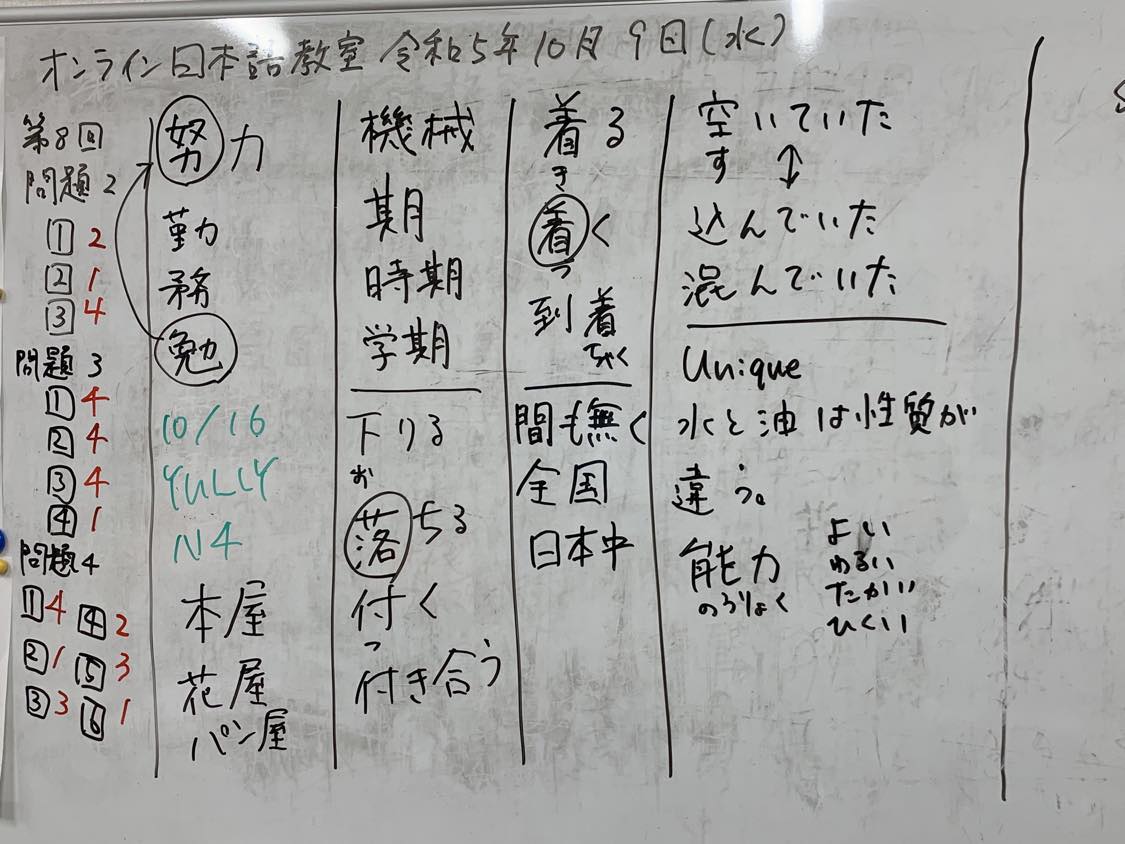 オンライン日本語教室 令和5年10月9日(水)
第8回
問題2
1 2
2 1
3 4
問題3
1 4
2 4
3 4
4 1
問題4
1 4
2 1
3 3
4 2
5 3
6 1
努力
勤
務
勉
10/16
YULLY
N4
本屋
花屋
パン屋
機械
期
時期
学期
下りる
お
落ちる
付く
つ
付き合う
着る
き
着く
つ
到着
ちゃく
間も無く
全国
日本中
空いていた
す
↕
込んでいた
混んでいた
Unique
水と油は性質が
違う。
能力
のうりょく
よい
わるい
たかい
ひくい